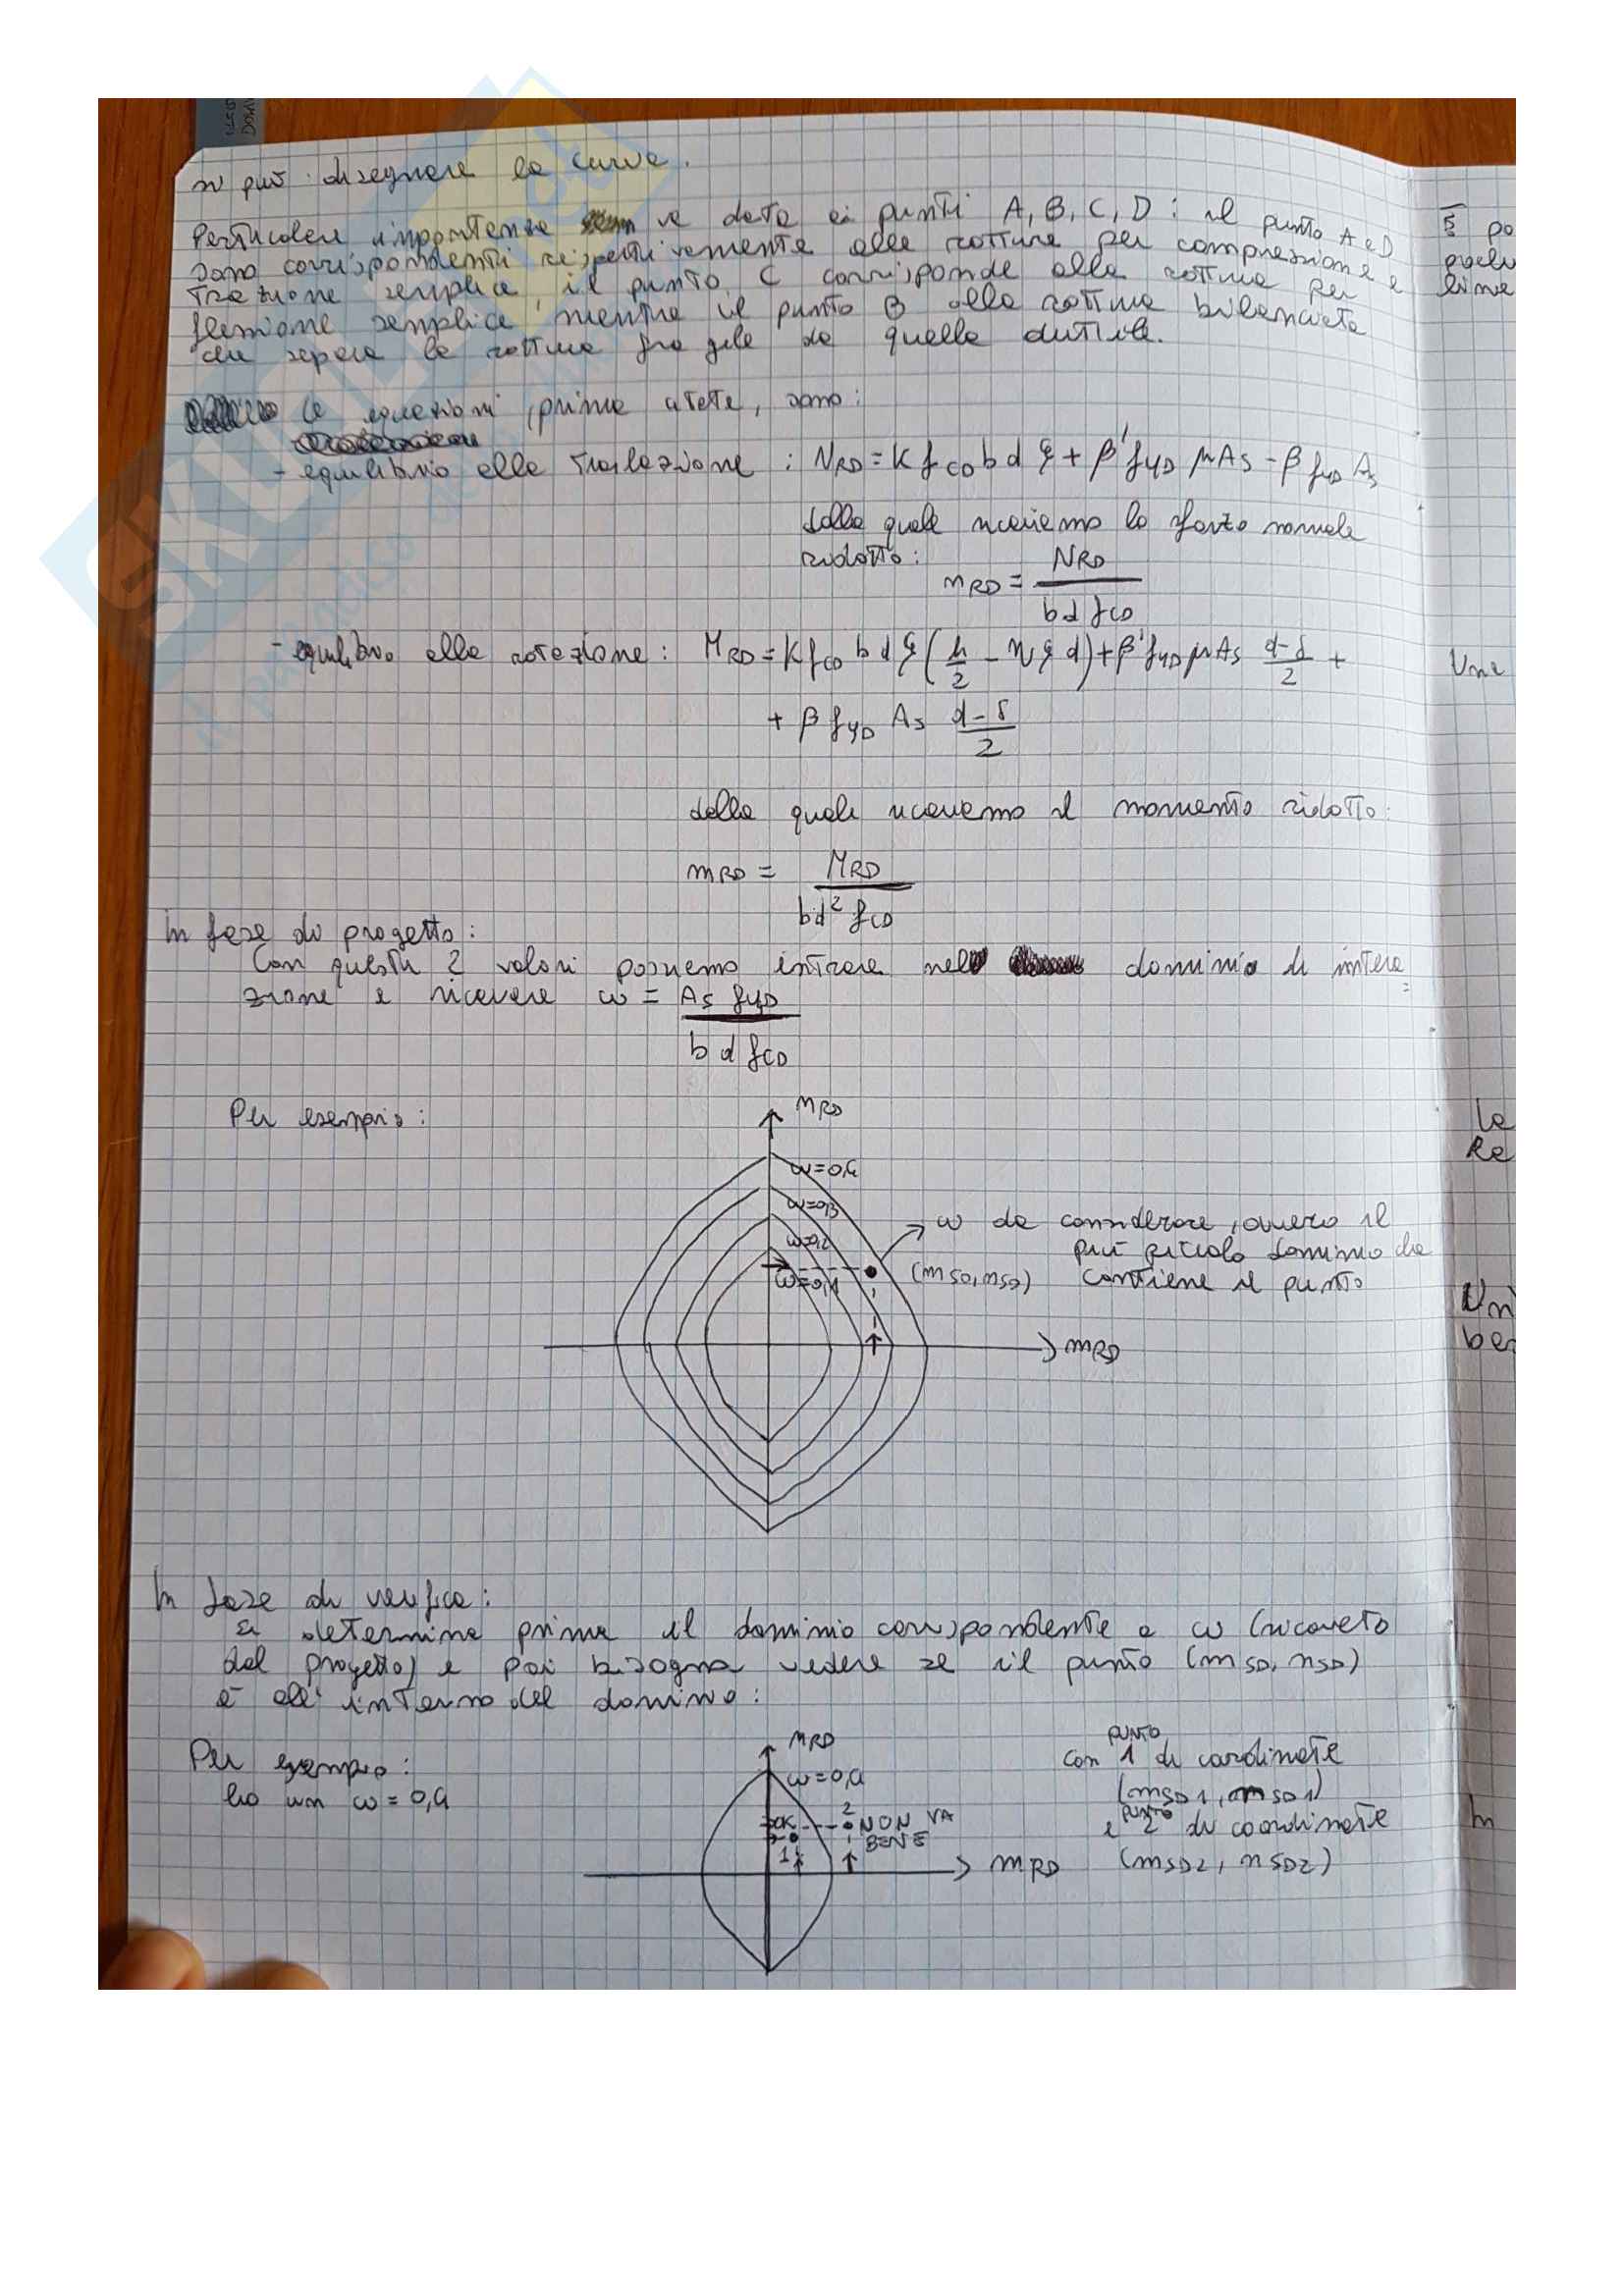 si può disegnare la curva.
Particolare importanza va data ai punti A, B, C, D : il punto A e D
sono corrispondenti rispettivamente alla rottura per compressione e
trazione semplice, il punto C corrisponde alla rottura per
flessione semplice mentre il punto B alla rottura bilanciata
che separa la rottura fragile da quella duttile.
le equazioni, prima citate, sono:
- equilibrio alla traslazione : NRD = K fCD b d ξ + β' fYD μ AS - β fYD AS
dalla quale ricaviamo lo sforzo normale
ridotto:
nRD = NRD / b d fCD
- equilibrio alla rotazione: MRD = K fCD b d ξ (h/2 - η ξ d) + β' fYD μ AS (d-δ)/2 +
+ β fYD AS (d-δ)/2
dalla quale ricaviamo il momento ridotto:
mRD = MRD / bd² fCD
In fase di progetto:
Con questi 2 valori possiamo entrare nel dominio di intera
zione e ricavare ω = AS fYD / b d fCD
Per esempio:
nRD
ω=0,4
ω=0,3
ω=0,2
ω=0,1
ω da considerare, ovvero il
più piccolo dominio che
contiene il punto
(mSD, nSD)
mRD
In fase di verifica:
si determina prima il dominio corrispondente a ω (ricavato
dal progetto) e poi bisogna vedere se il punto (mSD, nSD)
è all'interno del dominio:
Per esempio:
ho un ω = 0,4
nRD
ω=0,4
OK
1
2
NON VA
BENE
mRD
con PUNTO 1 di coordinate
(mSD1, nSD1)
e PUNTO 2 di coordinate
(mSD2, nSD2)
SKUOLA